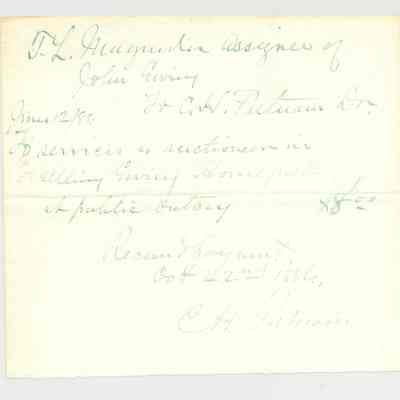 T. L. assignee of
John Ewing
To C. W. Putnam Dr.
June 12/86
To services as auctioneer in
selling Ewing Homeplace
at public outcry $8.00
Received payment
Oct 22nd 1886,
C W Putnam